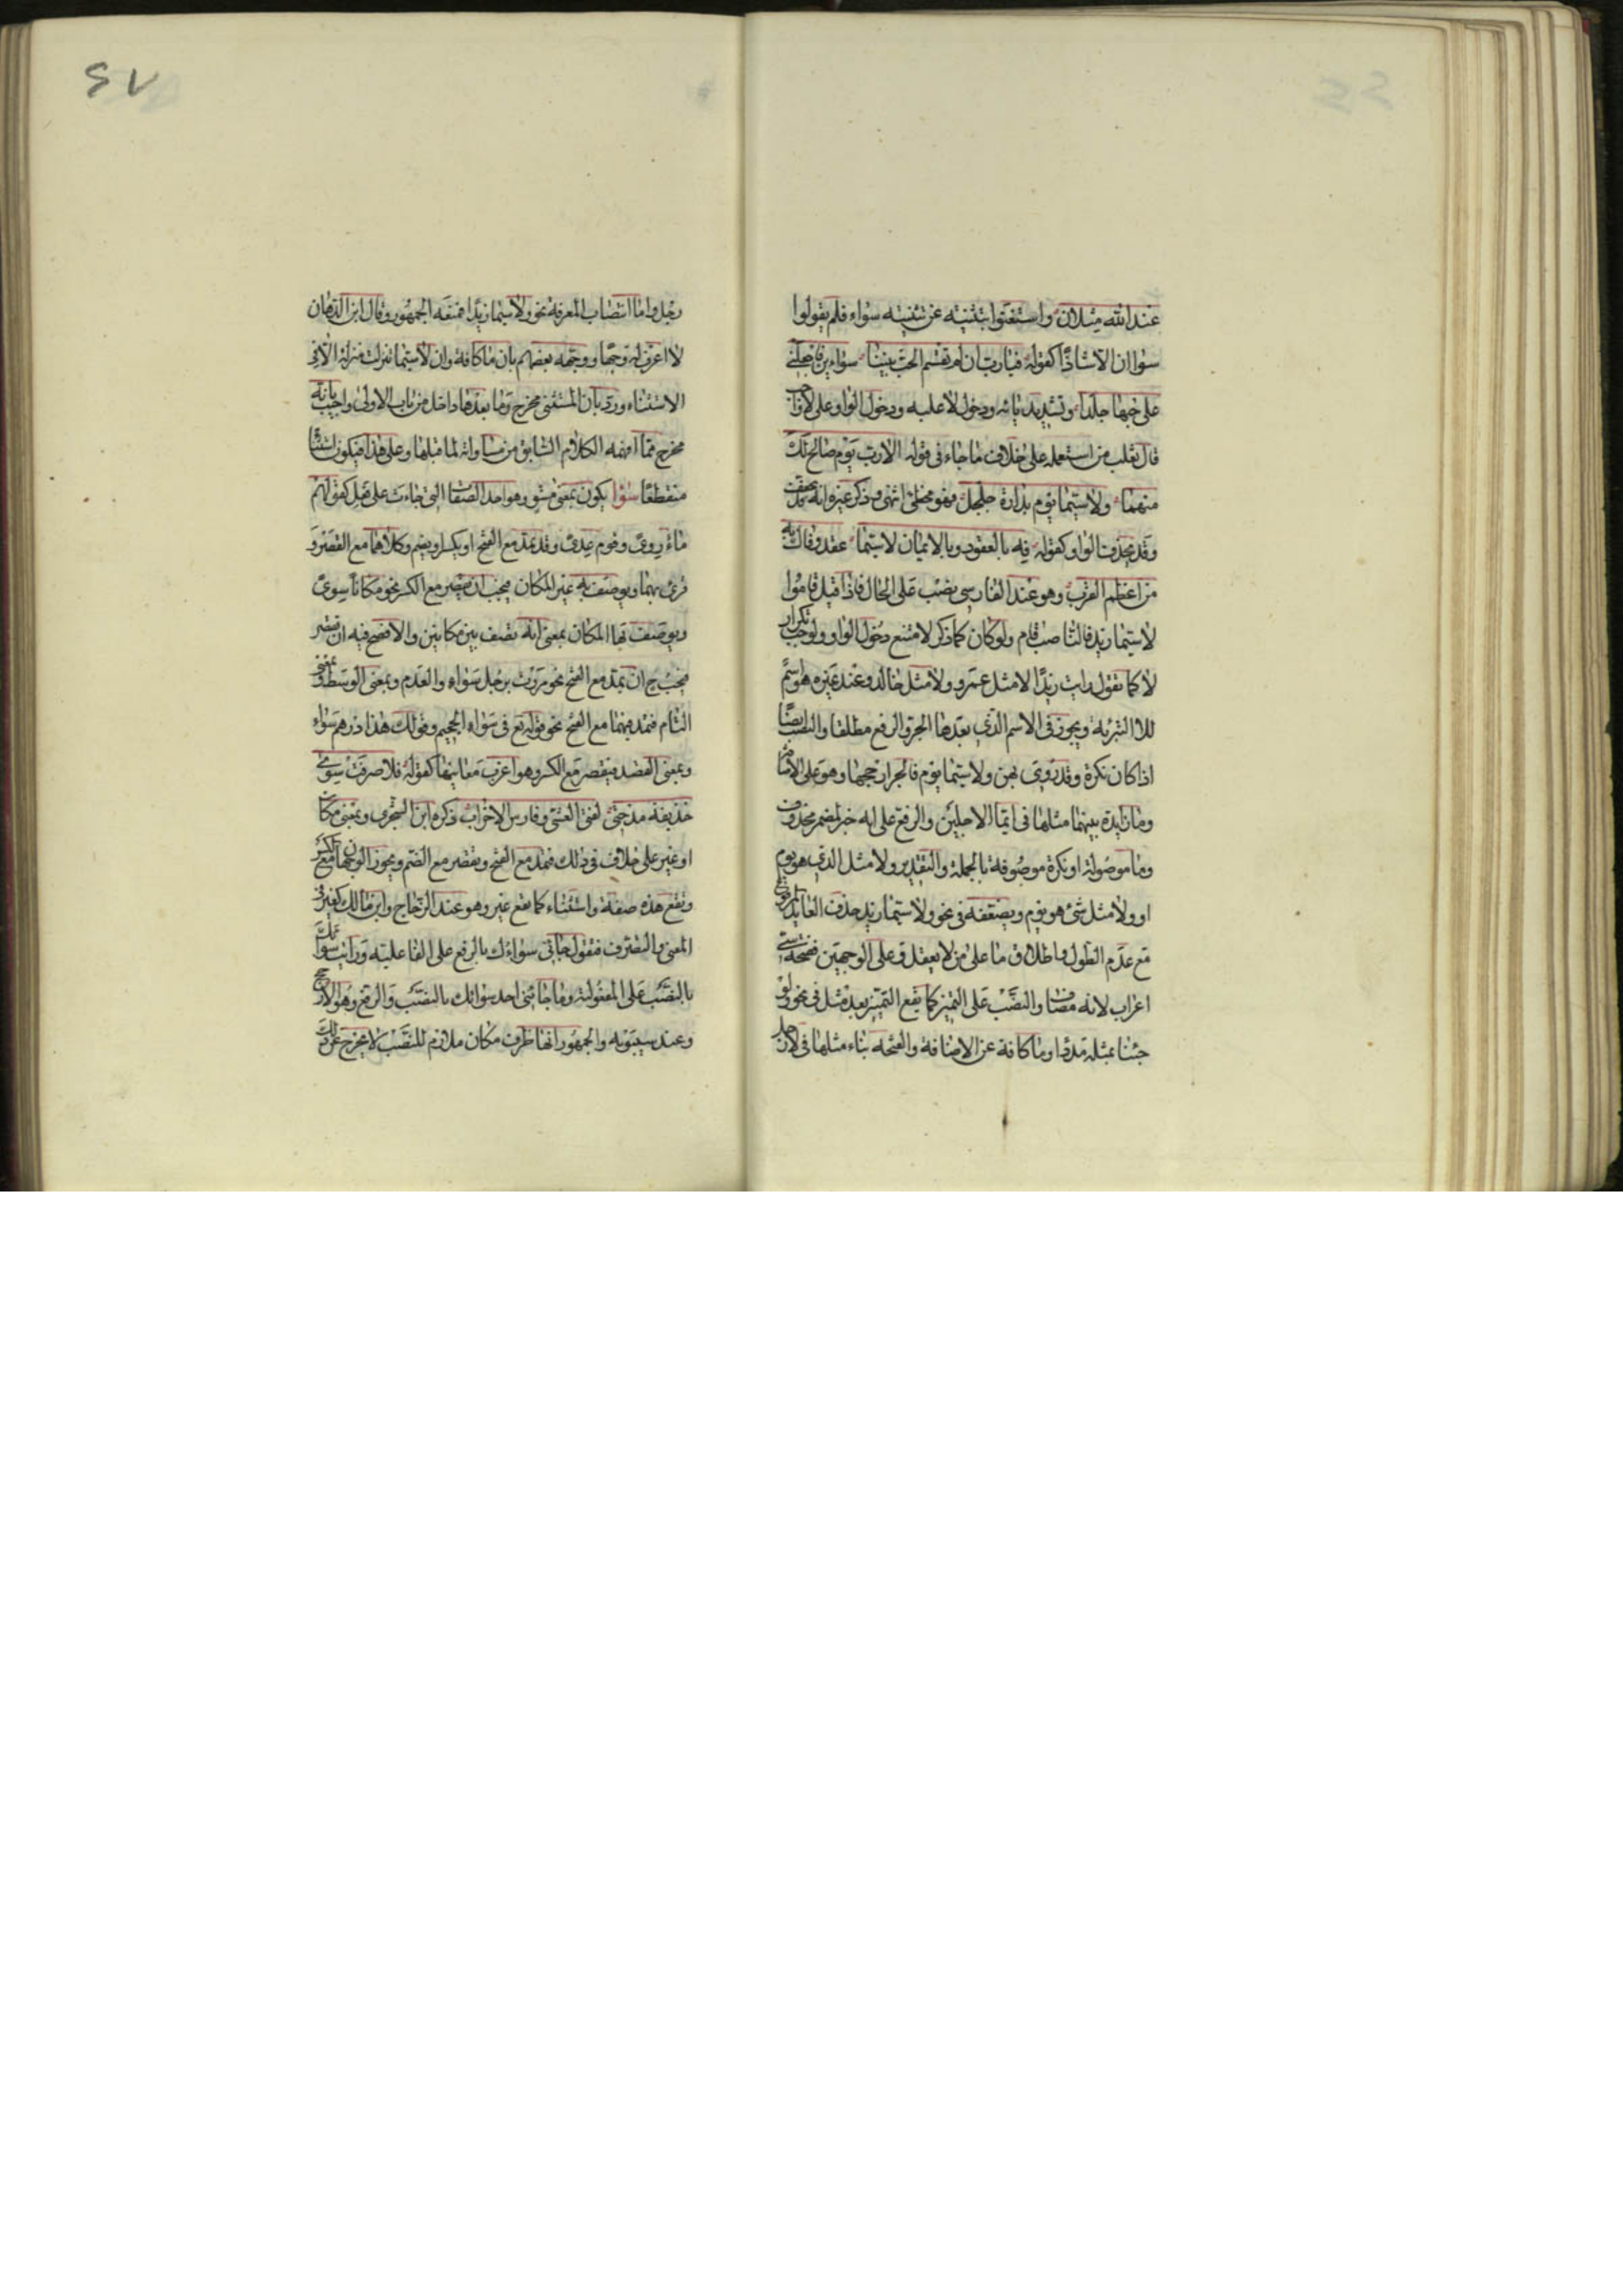 عند الله مثلان واستغنوا بتثنيته عن تثنيته سواء فلم يقولوا
سواان الا شاذا كقوله فيارب ان لم تقسم الحب بيننا سواءين فاجعلني
على حبها جلدا وتشديد يائه ودخول لا عليه ودخول الواو على لا واجب
قال ثعلب من استعمله على خلاف ما جاء في قوله الا رب يوم صالح لك
منهما ولا سيما يوم بدارة جلجل فهو مخطئ انتهى وذكر غيره انه قد يخفف
وقد يحذف الواو كقوله فه بالعقود وبالايمان لا سيما عقد وفاء به
من اعظم القرب وهو عند الفارسي نصب على الحال فاذا قيل قاموا
لا سيما زيد فالناصب قام ولو كان كما ذكر لامتنع دخول الواو ولوجب تكرار
لا كما تقول رايت زيدا لا مثل عمرو ولا مثل خالد وعند غيره هو اسم
للا التبرئة ويجوز في الاسم الذي بعدها الجر والرفع مطلقا والنصب ايضا
اذا كان نكرة وقد روي بهن ولا سيما يوم فالجر ارجحها وهو على الاضافة
وما زايدة بينهما مثلها في ايما الاجلين والرفع على انه خبر لمضمر محذوف
وما موصولة او نكرة موصوفة بالجملة والتقدير ولا مثل الذي هو يوم
او ولا مثل شئ هو يوم ويضعفه في نحو ولا سيما زيد حذف العايد المرفوع
مع عدم الطول واطلاق ما على من لا يعقل وعلى الوجهين ففتحة سي
اعراب لانه مضاف والنصب على التميز كما يقع التميز بعد مثل في نحو ولو
جئنا بمثله مددا وما كافة عن الاضافة والفتحة بناء مثلها في لا رجل
٢٧
رجل واما انتصاب المعرفة نحو ولا سيما زيدا فمنعه الجمهور وقال ابن الدهان
لا اعرف له وجها ووجهه بعضهم بان ما كافة وان لا سيما نزلت منزلة الا في
الاستثناء ورد بان المستثنى مخرج وما بعدها داخل من باب الاولى واجيب بانه
مخرج مما افهمه الكلام السابق من مساواته لما قبلها وعلى هذا فيكون استثناء
منقطعا سوا يكون بمعنى مستو وهو احد الصفات التي جاءت على فعل كقولهم
ماء روى وقوم عدى وقد تمد مع الفتح او يكسر ويضم وكلاهما مع القصر و
قرئ بهما ويوصف به غير المكان فيجب ان يقصر مع الكسر نحو مكانا سوى
ويوصف بها المكان بمعنى انه نصف بين مكانين والافصح فيه ان تقصر
فيجب ح ان تمد مع الفتح نحو مررت برجل سواء والعدم وبمعنى الوسط وبمعنى
التام فتمد فيهما مع الفتح نحو قوله تع في سواء الجحيم وقولك هذا درهم سواء
وبمعنى القصد فيقصر مع الكسر وهو اغرب معانيها كقوله فلا صرفت سوى
حذيفة مدحتي لفتى العشي وفارس الاحزاب ذكره ابن الشجري وبمعنى مكان
او غير على خلاف في ذلك فتمد مع الفتح وتقصر مع الضم ويجوز الوجهان مع الكسر
وتقع هذه صفة واستثناء كما تقع غير وهو عند الزجاج وابن مالك كغير في
المعنى والتصرف فتقول جاءني سواءك بالرفع على الفاعلية ورايت سواءك
بالنصب على المفعولية وما جائني احد سوائك بالنصب والرفع وهو الارجح
وعند سيبويه والجمهور انها ظرف مكان ملازم للنصب لا يخرج عن ذلك